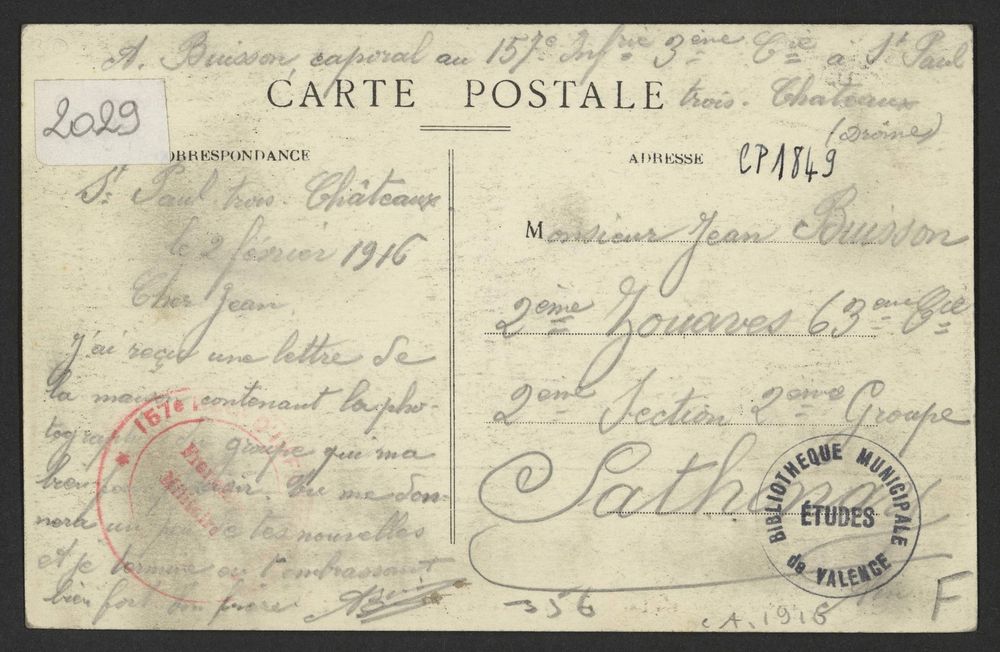 A. Buisson, caporal au 157e Infrie 3ème Cie à St Paul
trois-Chateaux
(Drôme)
CARTE POSTALE
2029
CORRESPONDANCE
ADRESSE
CP1849
St Paul trois-Châteaux
le 2 février 1916
Cher Jean,
J'ai reçu une lettre de
la maison contenant la pho-
tographie du groupe qui m'a
bien fait plaisir. Tu me don-
nera un peu de tes nouvelles
Et je termine en t'embrassant
bien fort ton frère
ABuisson
Monsieur Jean Buisson
2ème Zouaves 63ème Cie
2ème Section 2ème Groupe
Sathonay
Ain
157e
Militaire
BIBLIOTHEQUE MUNICIPALE
ÉTUDES
de VALENCE
356
CA. 1916
F